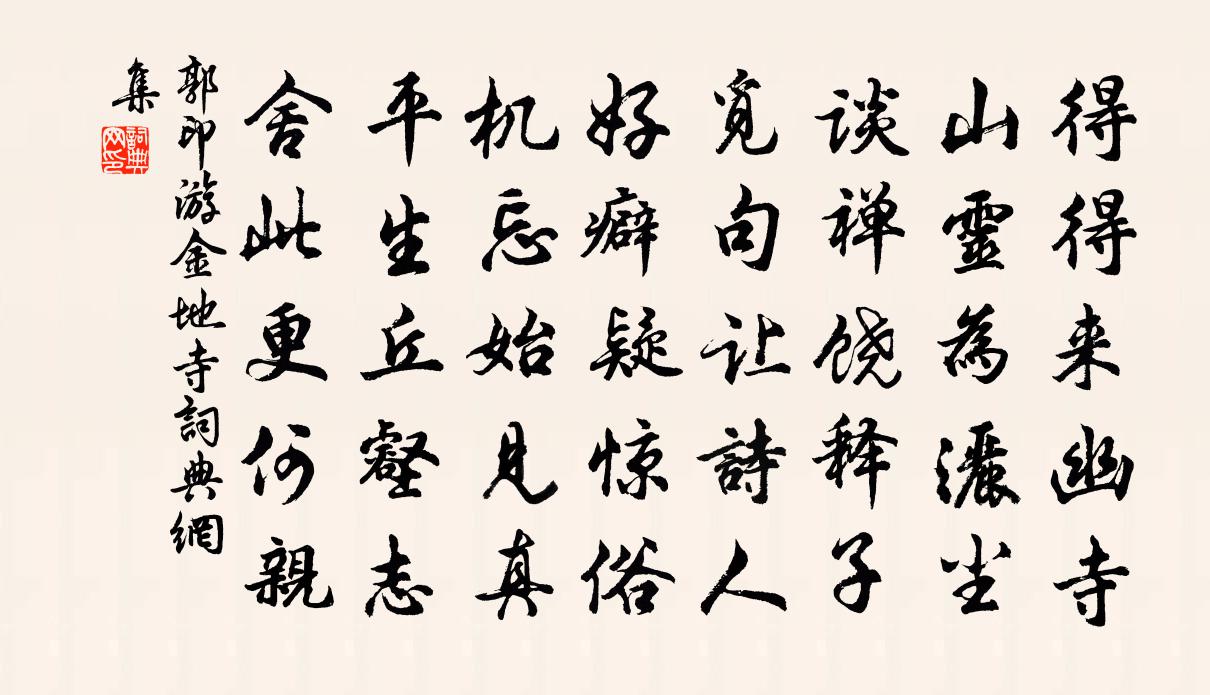 得得来幽寺
山靈為灑尘
谈禅饶释子
觅句让詩人
好癖疑惊俗
机忘始见真
平生丘壑志
舍此更何親
郭印游金地寺詞典網
集
詞典网印